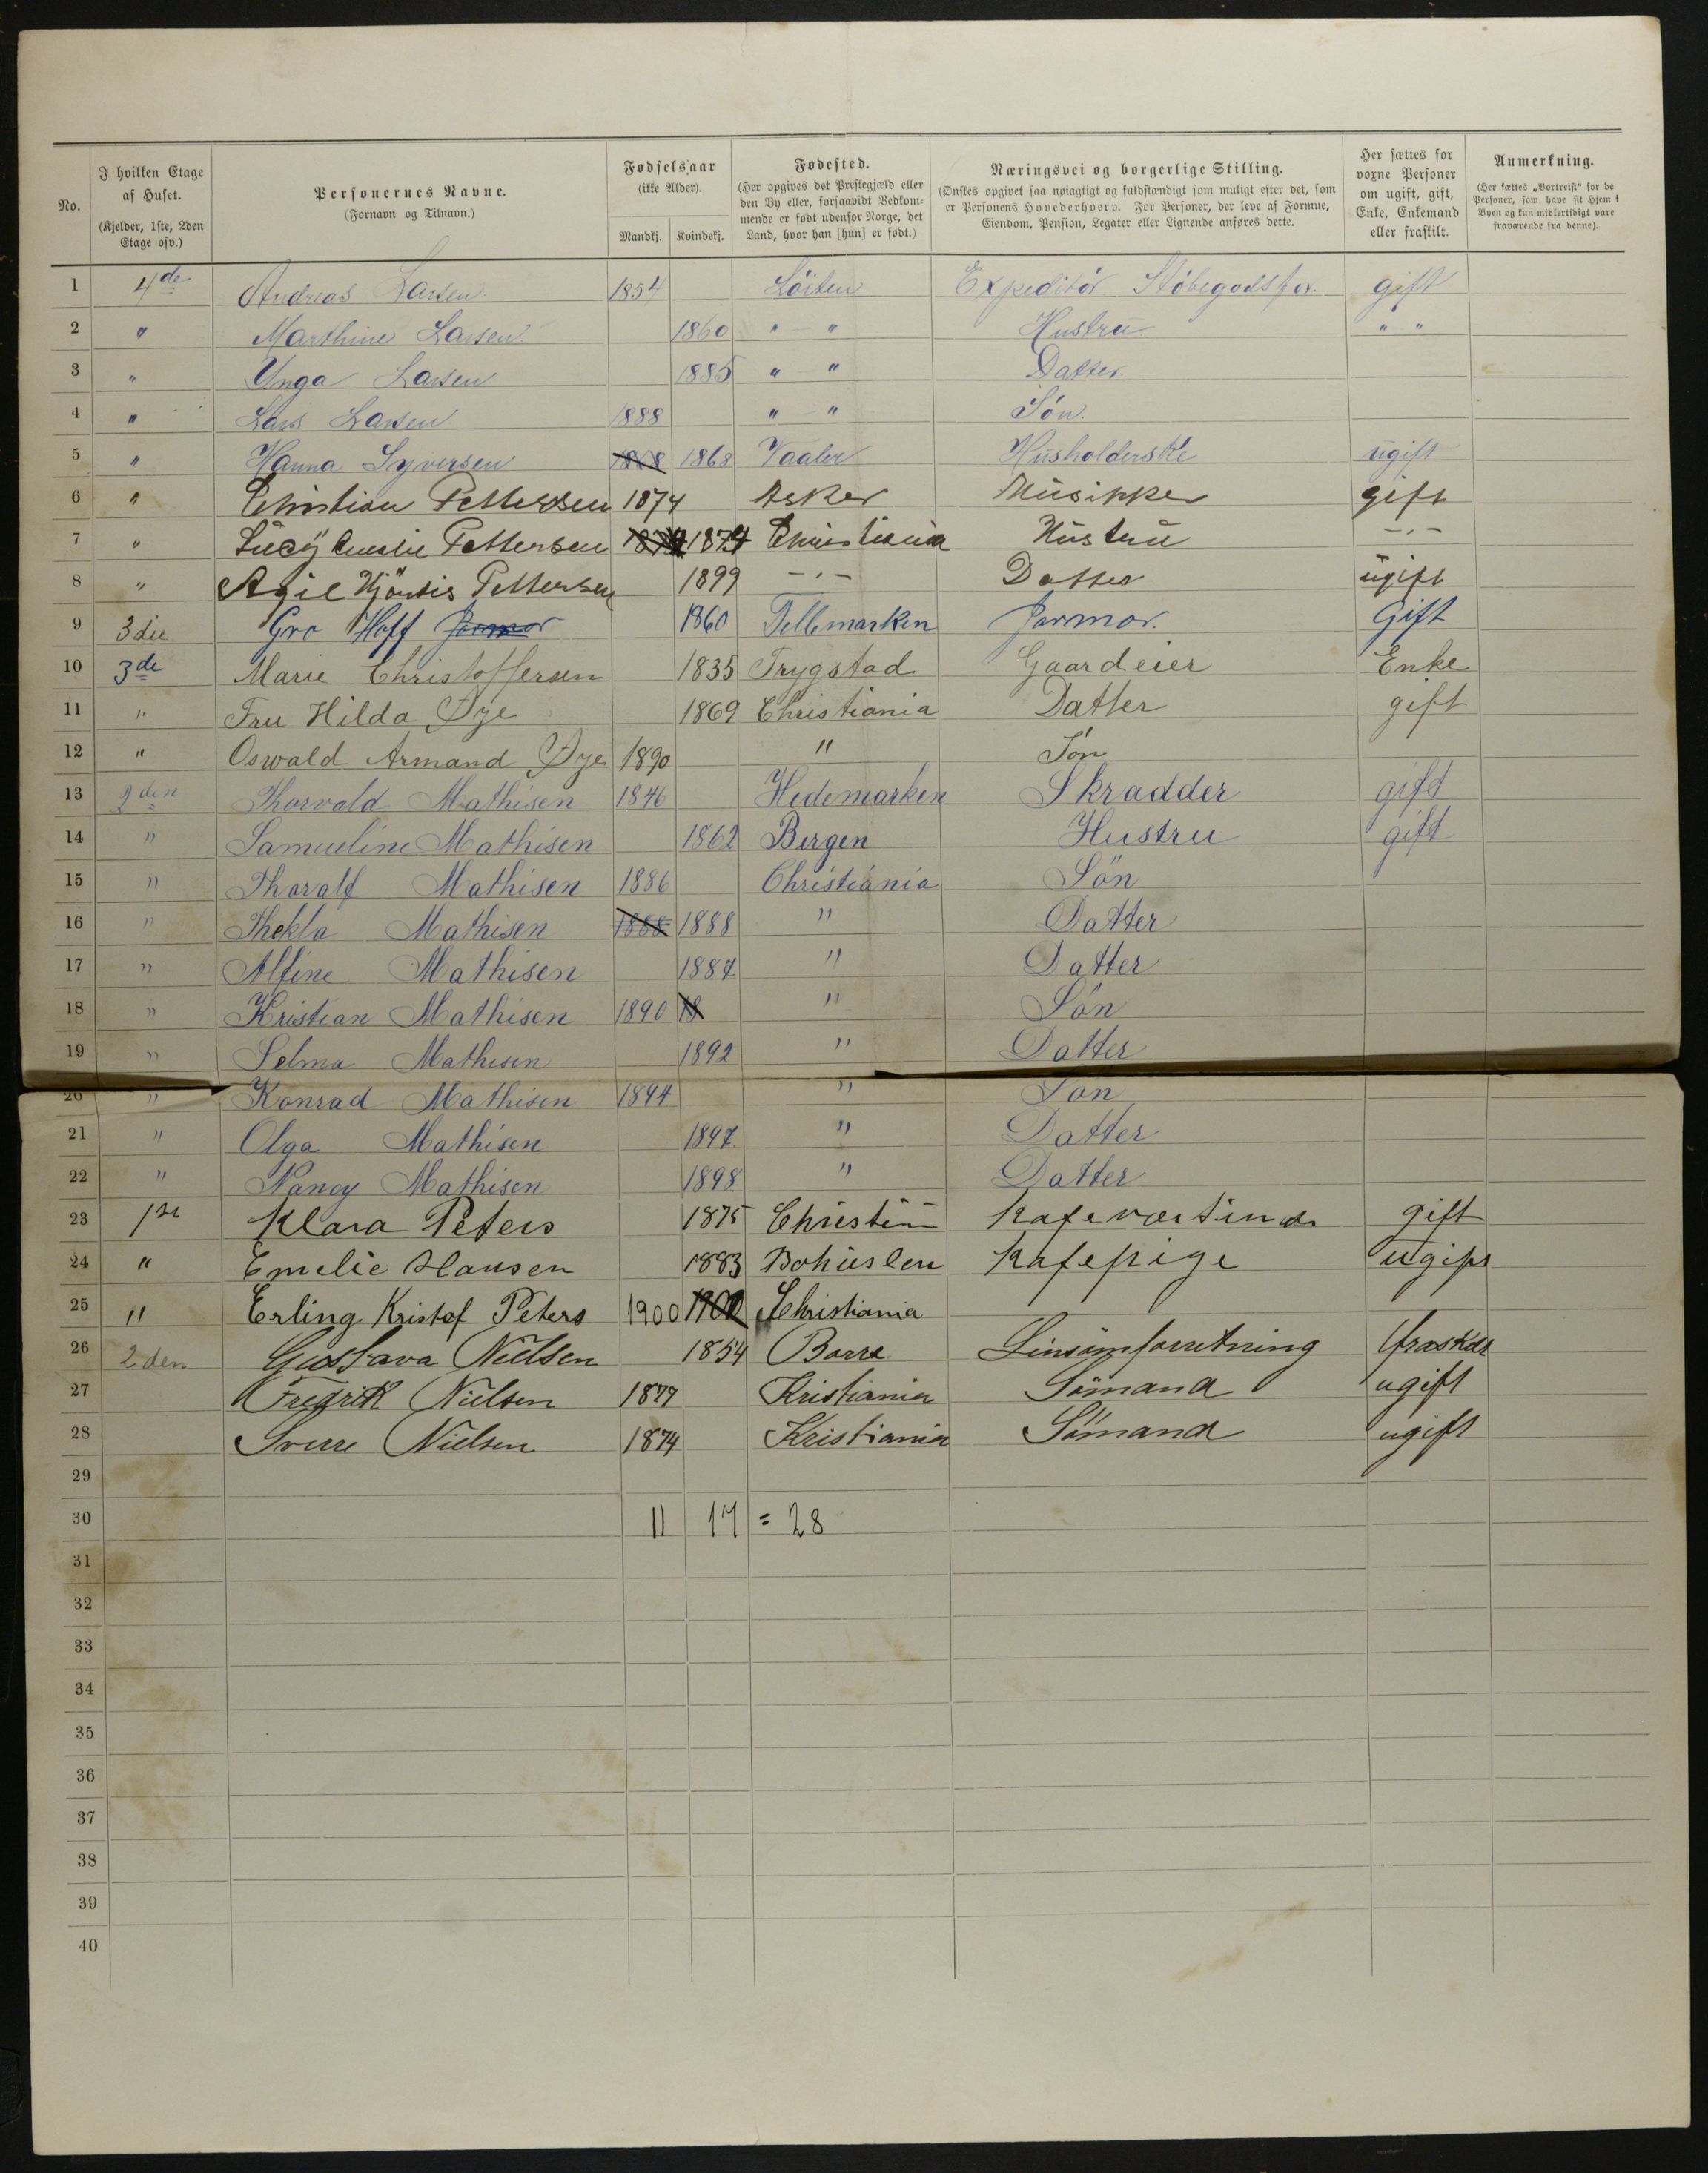 No.
I hvilken Etage af Huset. (Kjelder, 1ste, 2den Etage osv.)
Personernes Navne. (Fornavn og Tilnavn.)
Fødselsaar (ikke Alder). Mandkj. Kvindekj.
Fødested. (Her opgives det Prestegjæld eller den By eller, forsaavidt Vedkommende er født udenfor Norge, det Land, hvor han [hun] er født.)
Næringsvei og borgerlige Stilling. (Ønskes opgivet saa nøiagtigt og fuldstændigt som muligt efter det, som er Personens Hovederhverv. For Personer, der leve af Formue, Eiendom, Pension, Legater eller Lignende anføres dette.
Her sættes for voxne Personer om ugift, gift, Enke, Enkemand eller fraskilt.
Anmerkning. (Her sættes „Bortreist“ for de Personer, som have sit Hjem i Byen og kun midlertidigt vare fraværende fra denne).
1 4de Andreas Larsen 1854 Löiten Expeditör Støbegodsfor. gift
2 " Marthine Larsen 1860 " - " Hustru " "
3 " Ynga Larsen 1885 " - " Datter
4 " Lars Larsen 1888 " - " Sön.
5 " Hanna Syversen 1868 1868 Vaaler Husholderske ugift
6 " Christian Pettersen 1874 Asker Musikker gift
7 " Lucÿ Pettersen 1874 1874 Christiania Hustru -"-
8 " Agil Hjördis Pettersen 1899 -"- Datter ugift
9 3die Gro Hoff Jormor 1860 Tellemarken Jormor. Gift
10 3de Marie Christoffersen 1835 Trygstad Gaardeier Enke
11 " Fru Hilda Øye 1869 Christiania Datter gift
12 " Oswald Armand Øye 1890 " Søn
13 2den Thorvald Mathisen 1846 Hedemarken Skradder gift
14 " Samueline Mathisen 1862 Bergen Hustru gift
15 " Thoralf Mathisen 1886 Christiania Sön
16 " Thekla Mathisen 1888 1888 " Datter
17 " Alfine Mathisen 1887 " Datter
18 " Kristian Mathisen 1890 18 " Sön
19 " Selma Mathisen 1892 " Datter
20 " Konrad Mathisen 1894 " Son
21 " Olga Mathisen 1897 " Datter
22 " Nancy Mathisen 1898 " Datter
23 1ste Klara Peters 1875 Christian Kafeværtinde gift
24 " Emelie Hansen 1883 Bohuslen Kafepige ugift
25 " Erling Kristof Peters 1900 1900 Christiania
26 2den Gustava Nielsen 1854 Borre Linsömforretning fraskilt
27 Fredrik Nielsen 1877 Kristiania Sömand ugift
28 Sverre Nielsen 1874 Kristiania Sömand ugift
29
30 11 17 = 28
31
32
33
34
35
36
37
38
39
40